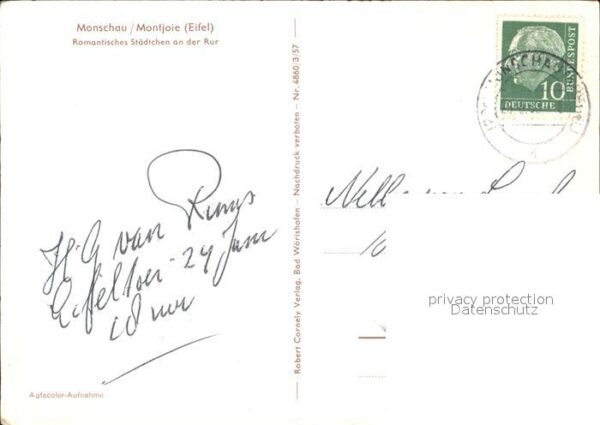 Monschau / Montjoie (Eifel)
Romantisches Städtchen an der Rur
10
DEUTSCHE
BUNDESPOST
MONSCHAU
Robert Cornely Verlag, Bad Wörishofen – Nachdruck verboten – Nr. 4860/3/57
van
24 Juni
10 uur
10
privacy protection
Datenschutz
Agfacolor-Aufnahme